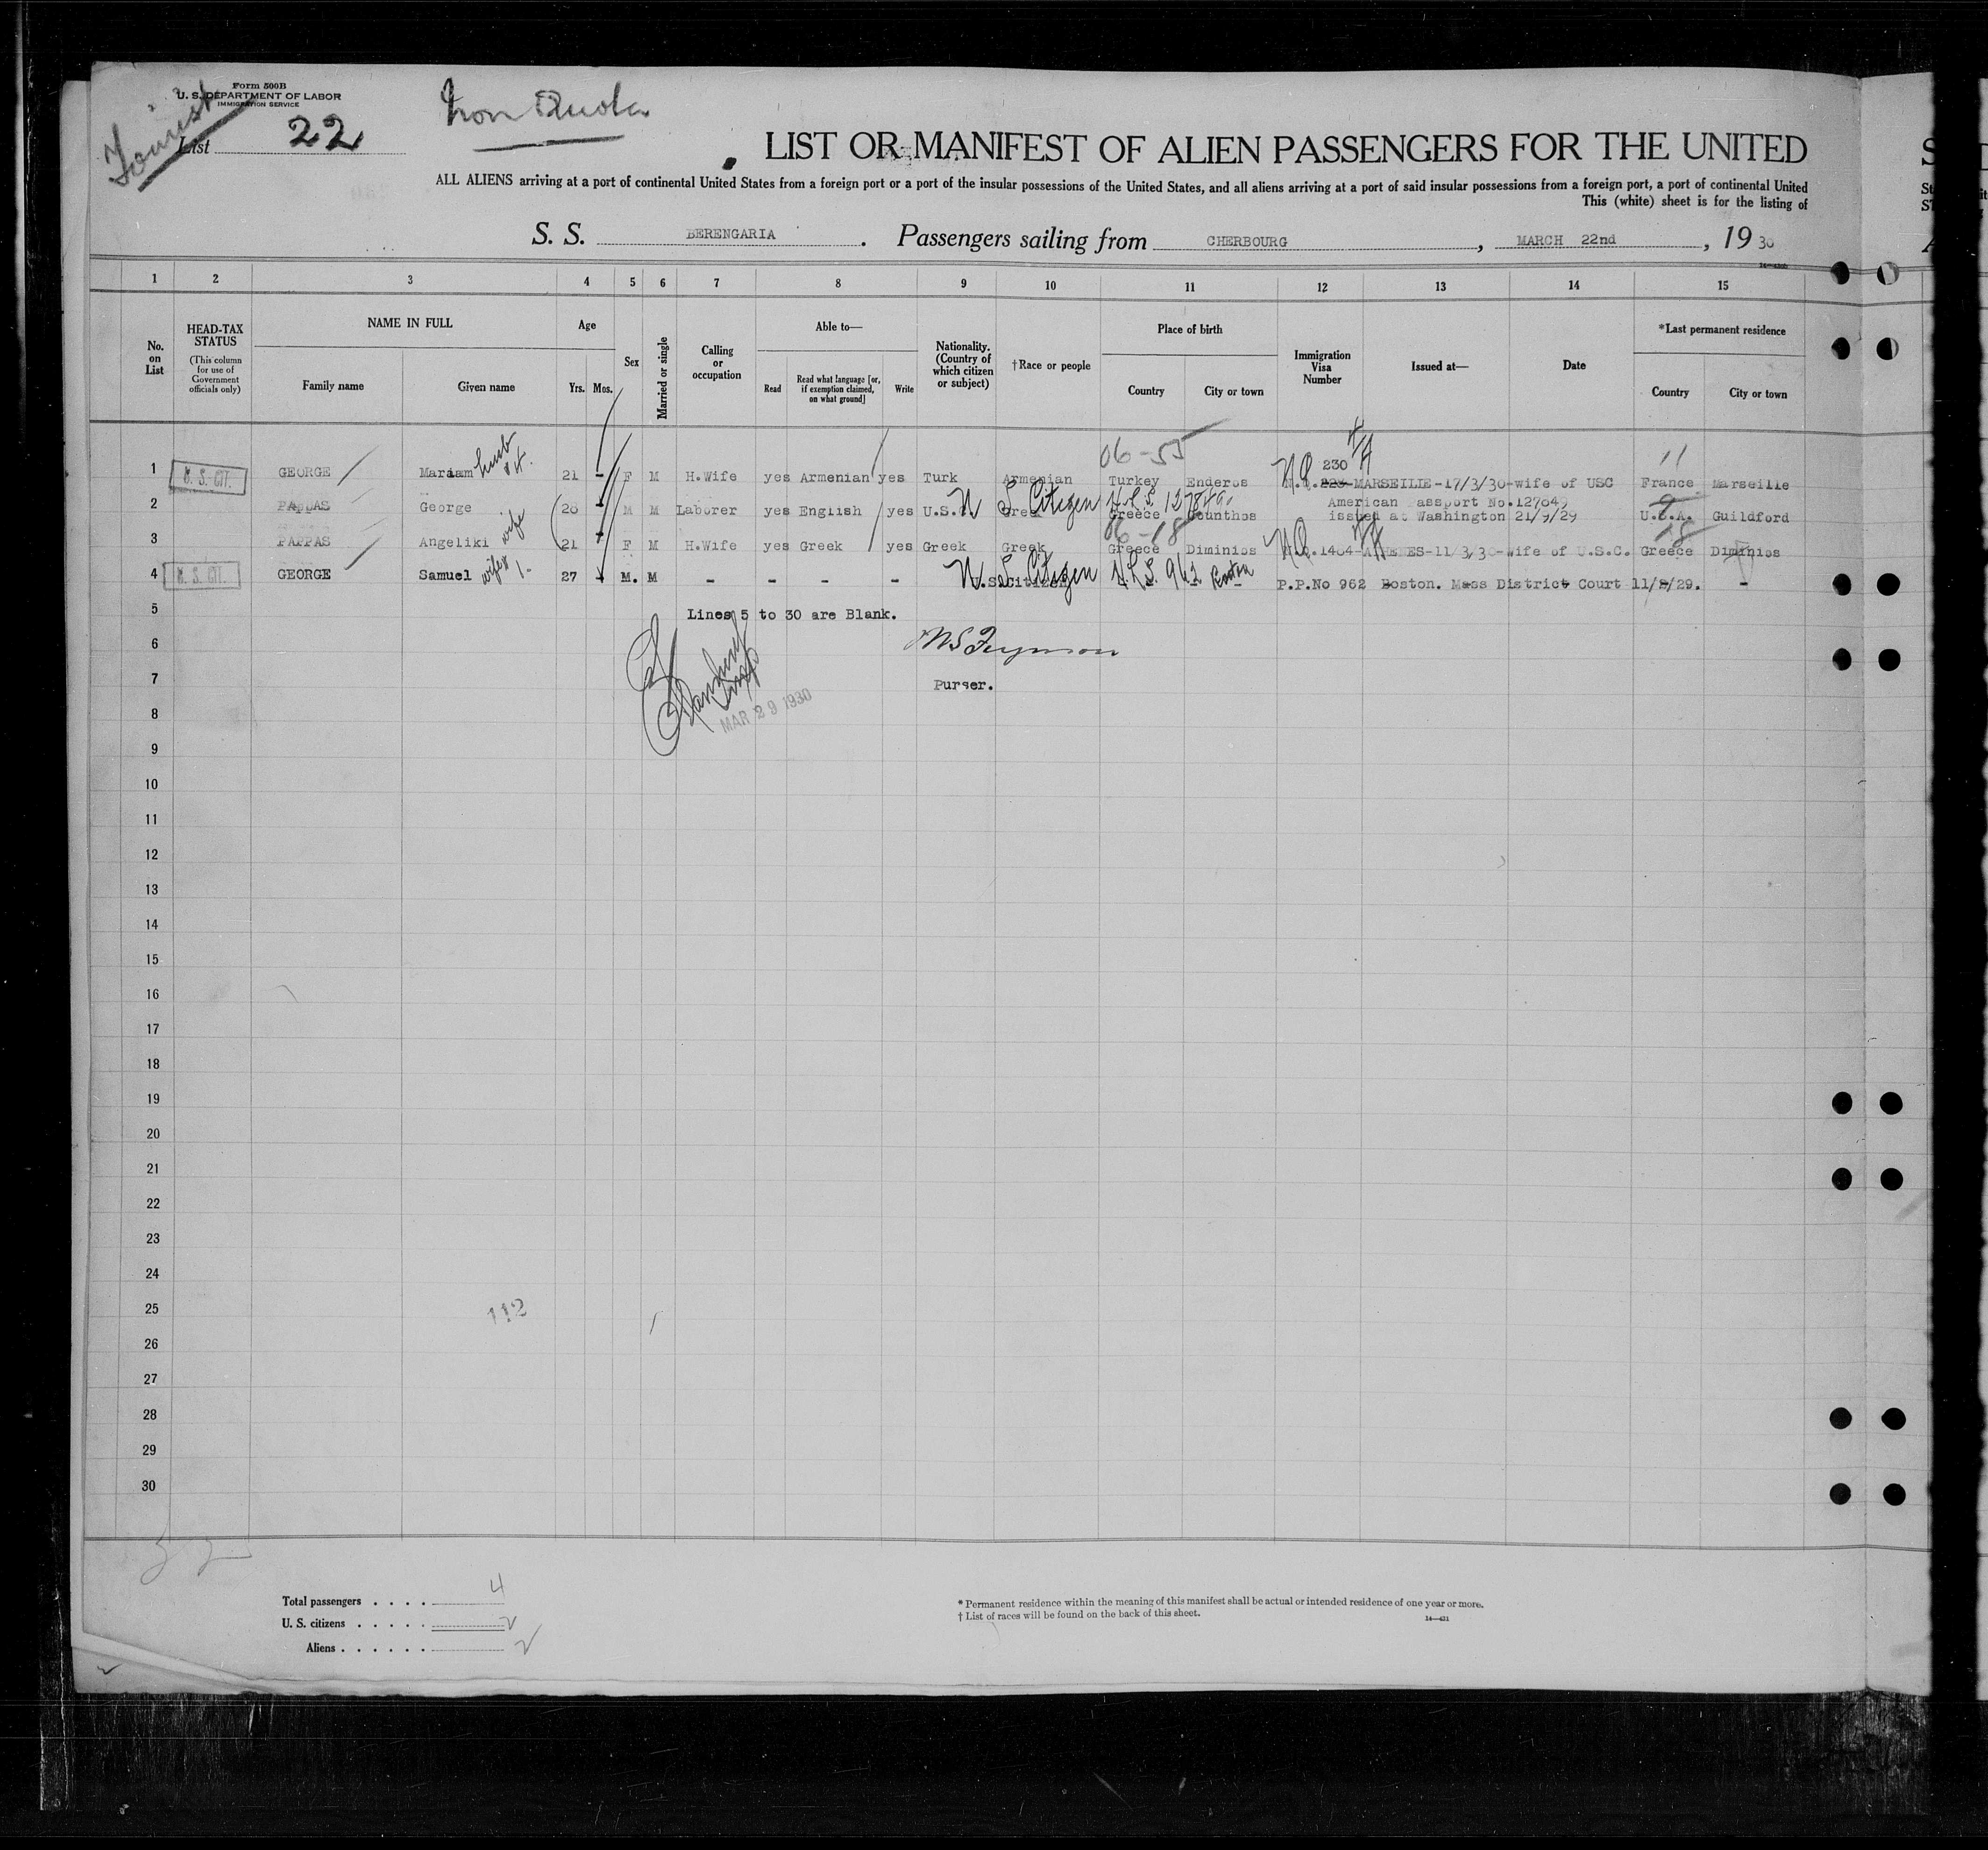 Form 500B
U. S. DEPARTMENT OF LABOR
IMMIGRATION SERVICE
Tourist
List 22
Non Quota
LIST OR MANIFEST OF ALIEN PASSENGERS FOR THE UNITED
ALL ALIENS arriving at a port of continental United States from a foreign port or a port of the insular possessions of the United States, and all aliens arriving at a port of said insular possessions from a foreign port, a port of continental United
This (white) sheet is for the listing of
S. S. BERENGARIA. Passengers sailing from CHERBOURG, MARCH 22nd, 19 30
1 2 3 4 5 6 7 8 9 10 11 12 13 14 15
No. on List
HEAD-TAX STATUS (This column for use of Government officials only)
NAME IN FULL
Family name Given name
Age
Yrs. Mos.
Sex
Married or single
Calling or occupation
Able to—
Read Read what language [or, if exemption claimed, on what ground] Write
Nationality. (Country of which citizen or subject)
†Race or people
Place of birth
Country City or town
Immigration Visa Number
Issued at—
Date
*Last permanent residence
Country City or town
06-55 11
230
1 U. S. CIT. GEORGE Mariam husb 21 - F M H.Wife yes Armenian yes Turk Armenian Turkey Enderos N.Q. MARSEILLE-17/3/30-wife of USC France Marseille
American assport No.127849
2 PAPPAS George wife M M Laborer yes English yes U.S. Greek Greece issued at Washington 21/9/29 U.S.A. Guildford
U S Citizen
06-18
3 PAPPAS Angeliki 21 - F M H.Wife yes Greek yes Greek Greek Greece Diminios N.Q.1404-ATHENES-11/3/30-wife of U.S.C. Greece Diminios
4 U. S. CIT. GEORGE Samuel wife 1- 27 - M. M - - - - U.S.Citizen - P.P.No 962 Boston. Mass District Court 11/2/29. -
U S Citizen 962 Boston
5 Lines 5 to 30 are Blank.
6
7 Purser.
MAR 29 1930
8
9
10
11
12
13
14
15
16
17
18
19
20
21
22
23
24
25
112
26
27
28
29
30
Total passengers . . . . 4
U. S. citizens . . . . . 2
Aliens . . . . . . 2
* Permanent residence within the meaning of this manifest shall be actual or intended residence of one year or more.
† List of races will be found on the back of this sheet.
14—421